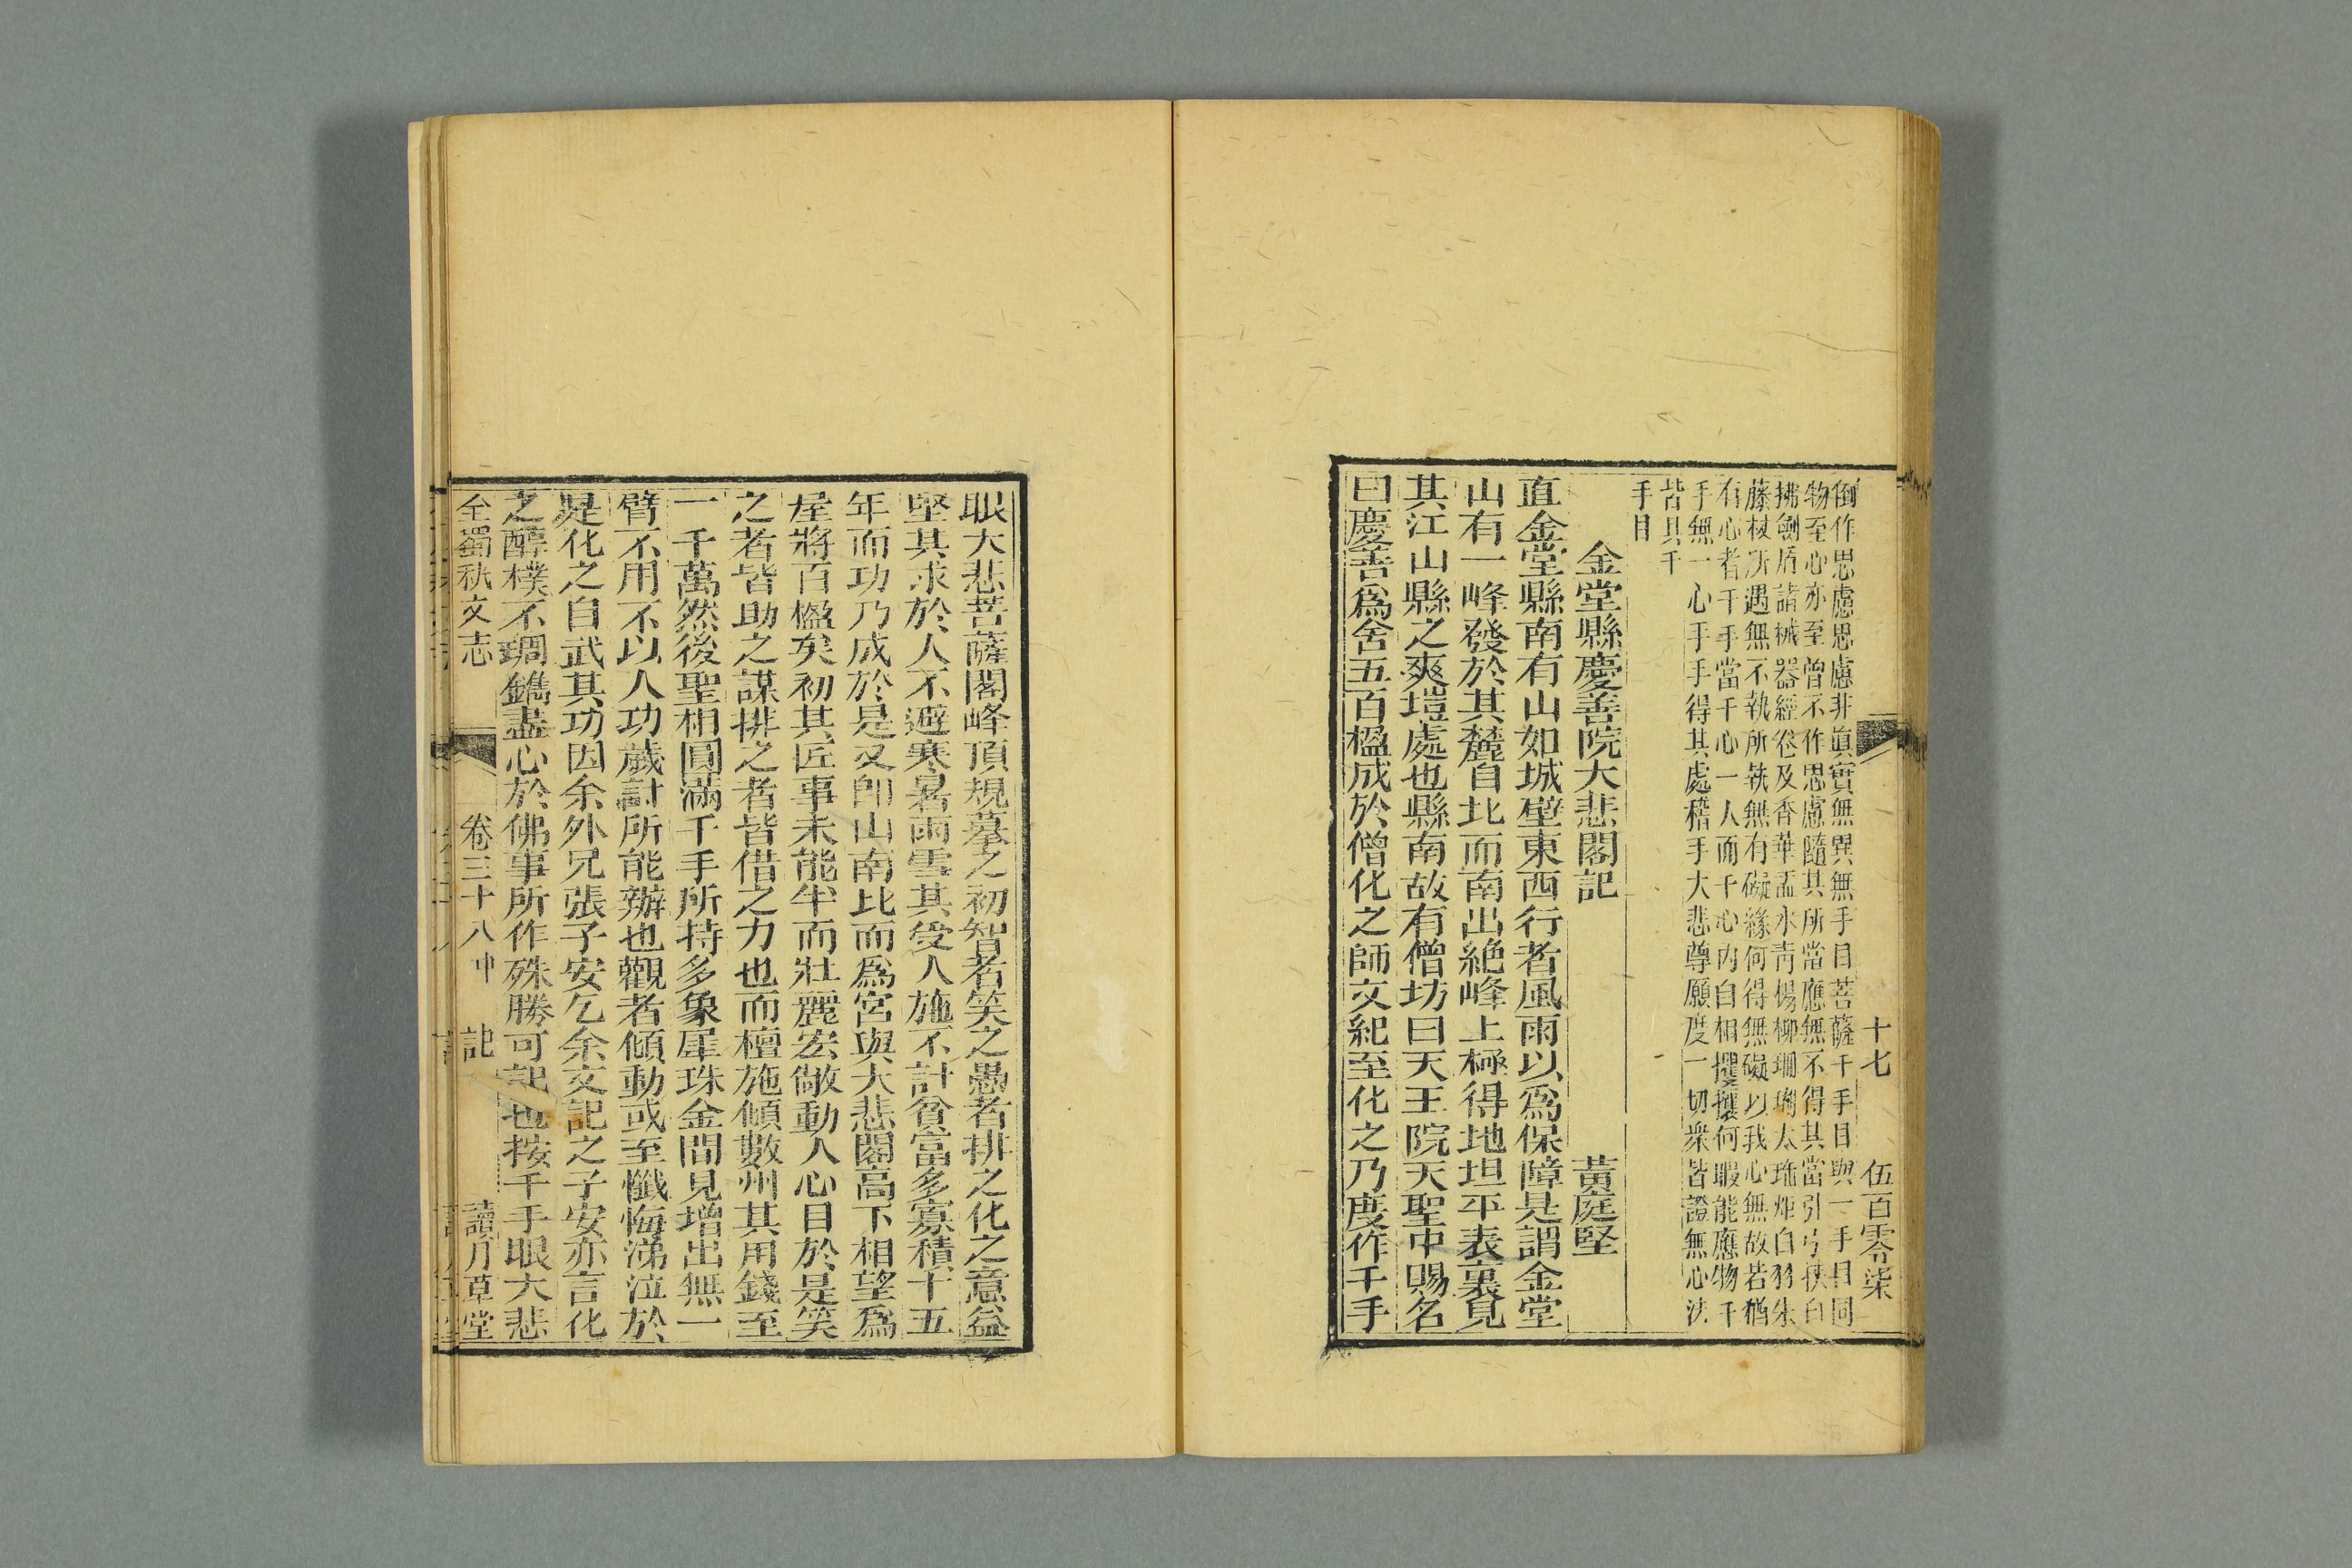 十七 伍百零柒
倒作思慮思慮非眞實無異無手目菩薩千手目與一手目同
物至心亦至曾不作思慮隨其所當應無不得其當引弓挾白
拂劍盾諸械器經卷及香華盂水靑楊柳珊瑚大琉炬白羽朱
藤杖所遇無不執所執無有礙緣何得無礙以我心無故若猶
有心者千手當千心一人而千心內自相攫攘何暇能應物千
手無一心手手得其處稽手大悲尊願度一切衆皆證無心法
皆具千
手目
金堂縣慶善院大悲閣記
黃庭堅
直金堂縣南有山如城壁東西行者風雨以爲保障是謂金堂
山有一峰發於其麓自北而南出絶峰上極得地坦平表裏見
其江山縣之爽塏處也縣南故有僧坊曰天王院天聖中賜名
曰慶善爲舍五百楹成於僧化之師文紀至化之乃度作千手
眼大悲菩薩閣峰頂規摹之初智者笑之愚者排之化之意益
堅其求於人不避寒暑雨雪其受人施不計貧富多寡積十五
年而功乃成於是又卽山南北而爲宮與大悲閣高下相望爲
屋將百楹矣初其匠事未能半而壯麗宏敞動人心目於是笑
之者皆助之謀排之者皆借之力也而檀施傾數州其用錢至
一千萬然後聖相圓滿千手所持多象犀珠金間見增出無一
臂不用不以人功歲計所能辦也觀者傾動或至懺悔涕泣於
是化之自武其功因余外兄張子安乞余文記之子安亦言化
之醇樸不琱鐫盡心於佛事所作殊勝可記也按千手眼大悲
全蜀秇文志 卷三十八中 記 讀月草堂